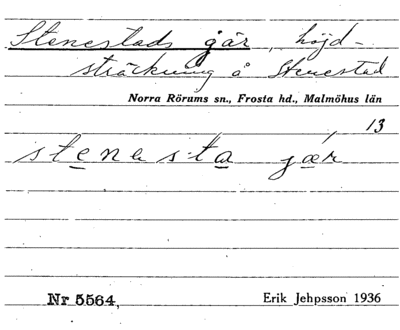 Stenestads gär, höjd-
sträckning å Stenestad
Norra Rörums sn., Frosta hd., Malmöhus län
13
stenesta jær
Nr 5564, Erik Jehpsson 1936